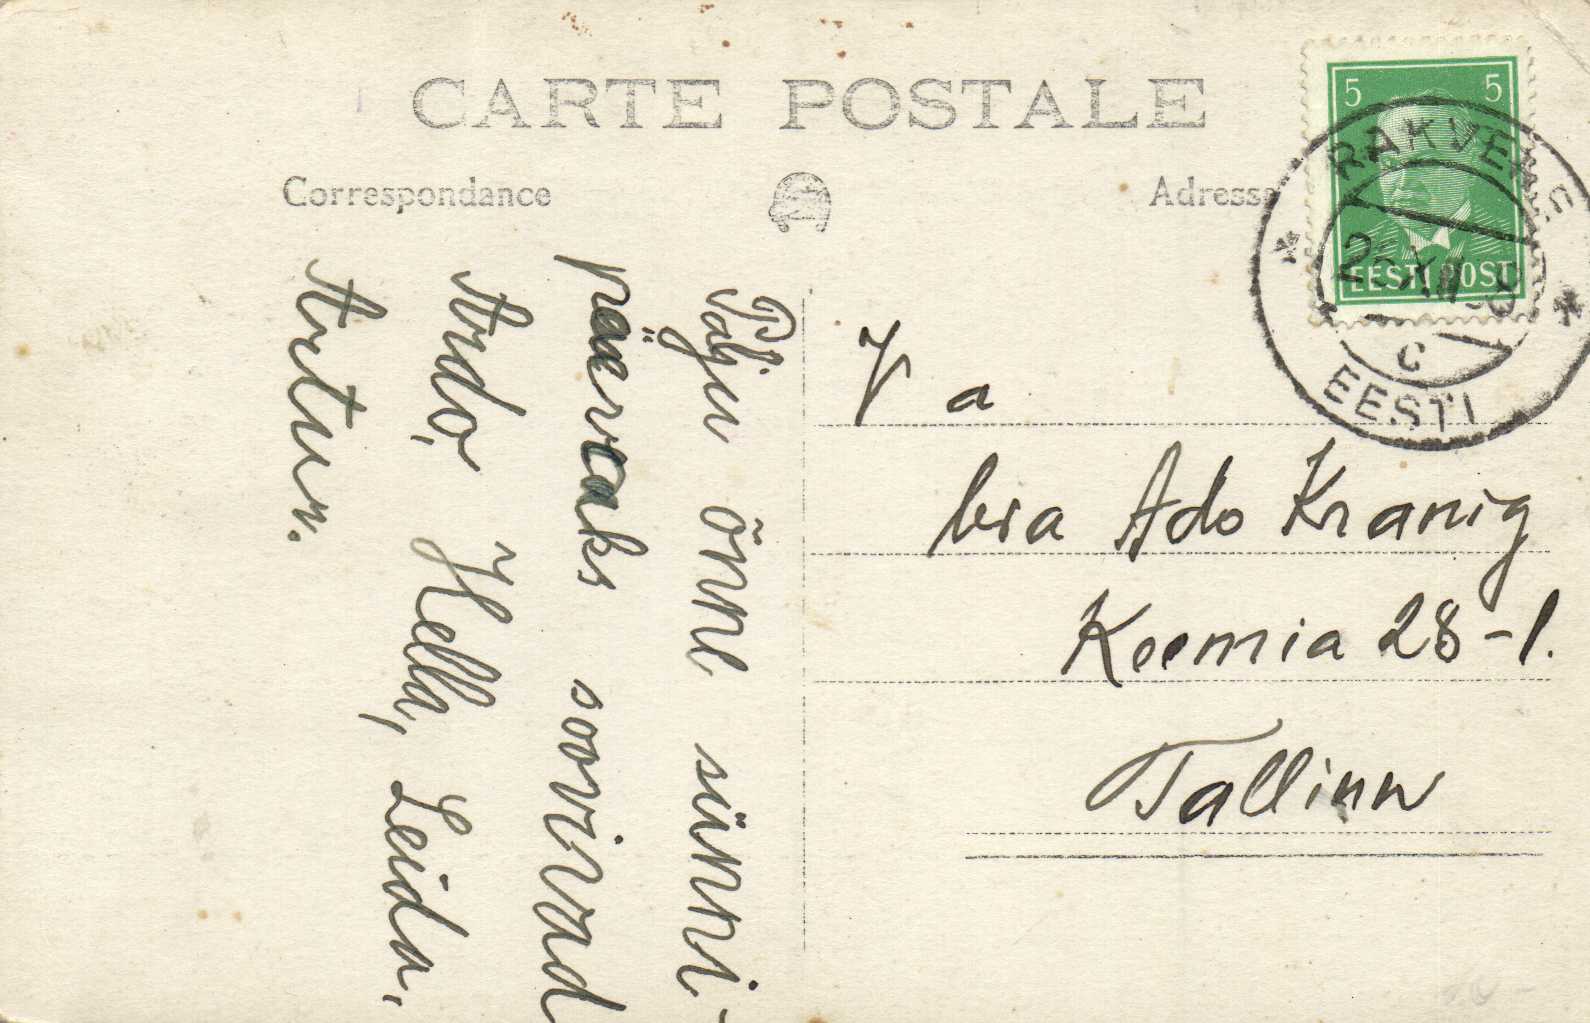 CARTE POSTALE
Correspondance
Adresse
5 5
EESTI POST
RAKVERE
C
EESTI
Palju õnne sünni-
päevaks soovivad
Ardo, Hella, Leida,
Artur.
V a
hra Ado Kranig
Keemia 28-1.
Tallinn